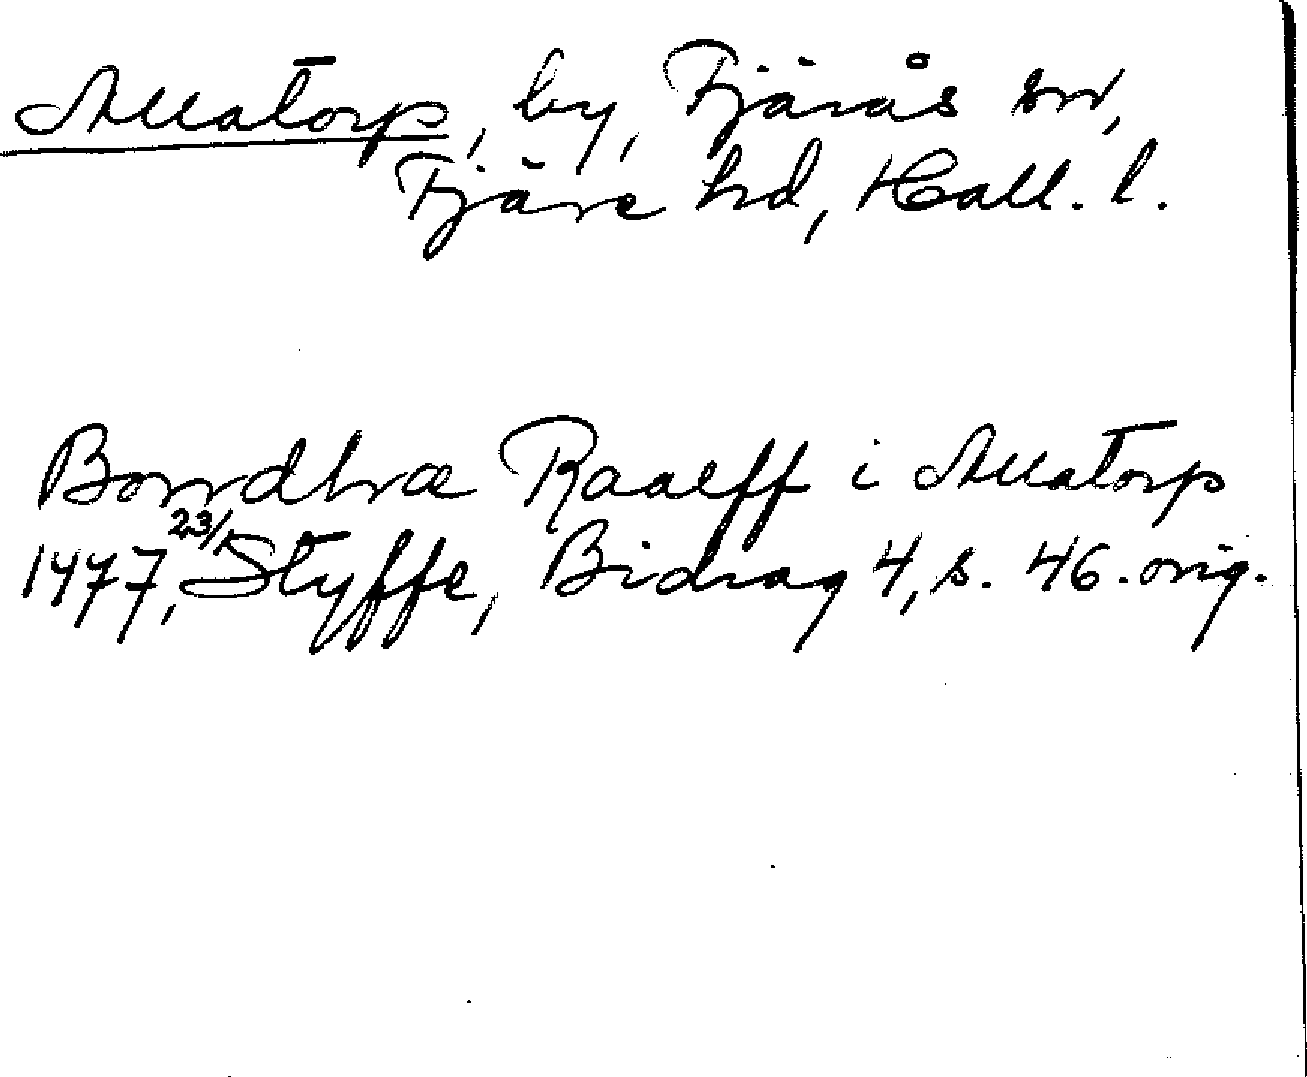 Allatorp, by, Fjärås sn,
Fjäre hd, Hall. l.
Bondhræ Raaeff i Allatorp
1477, 23/1 Styffe, Bidrag 4, s. 46. orig.